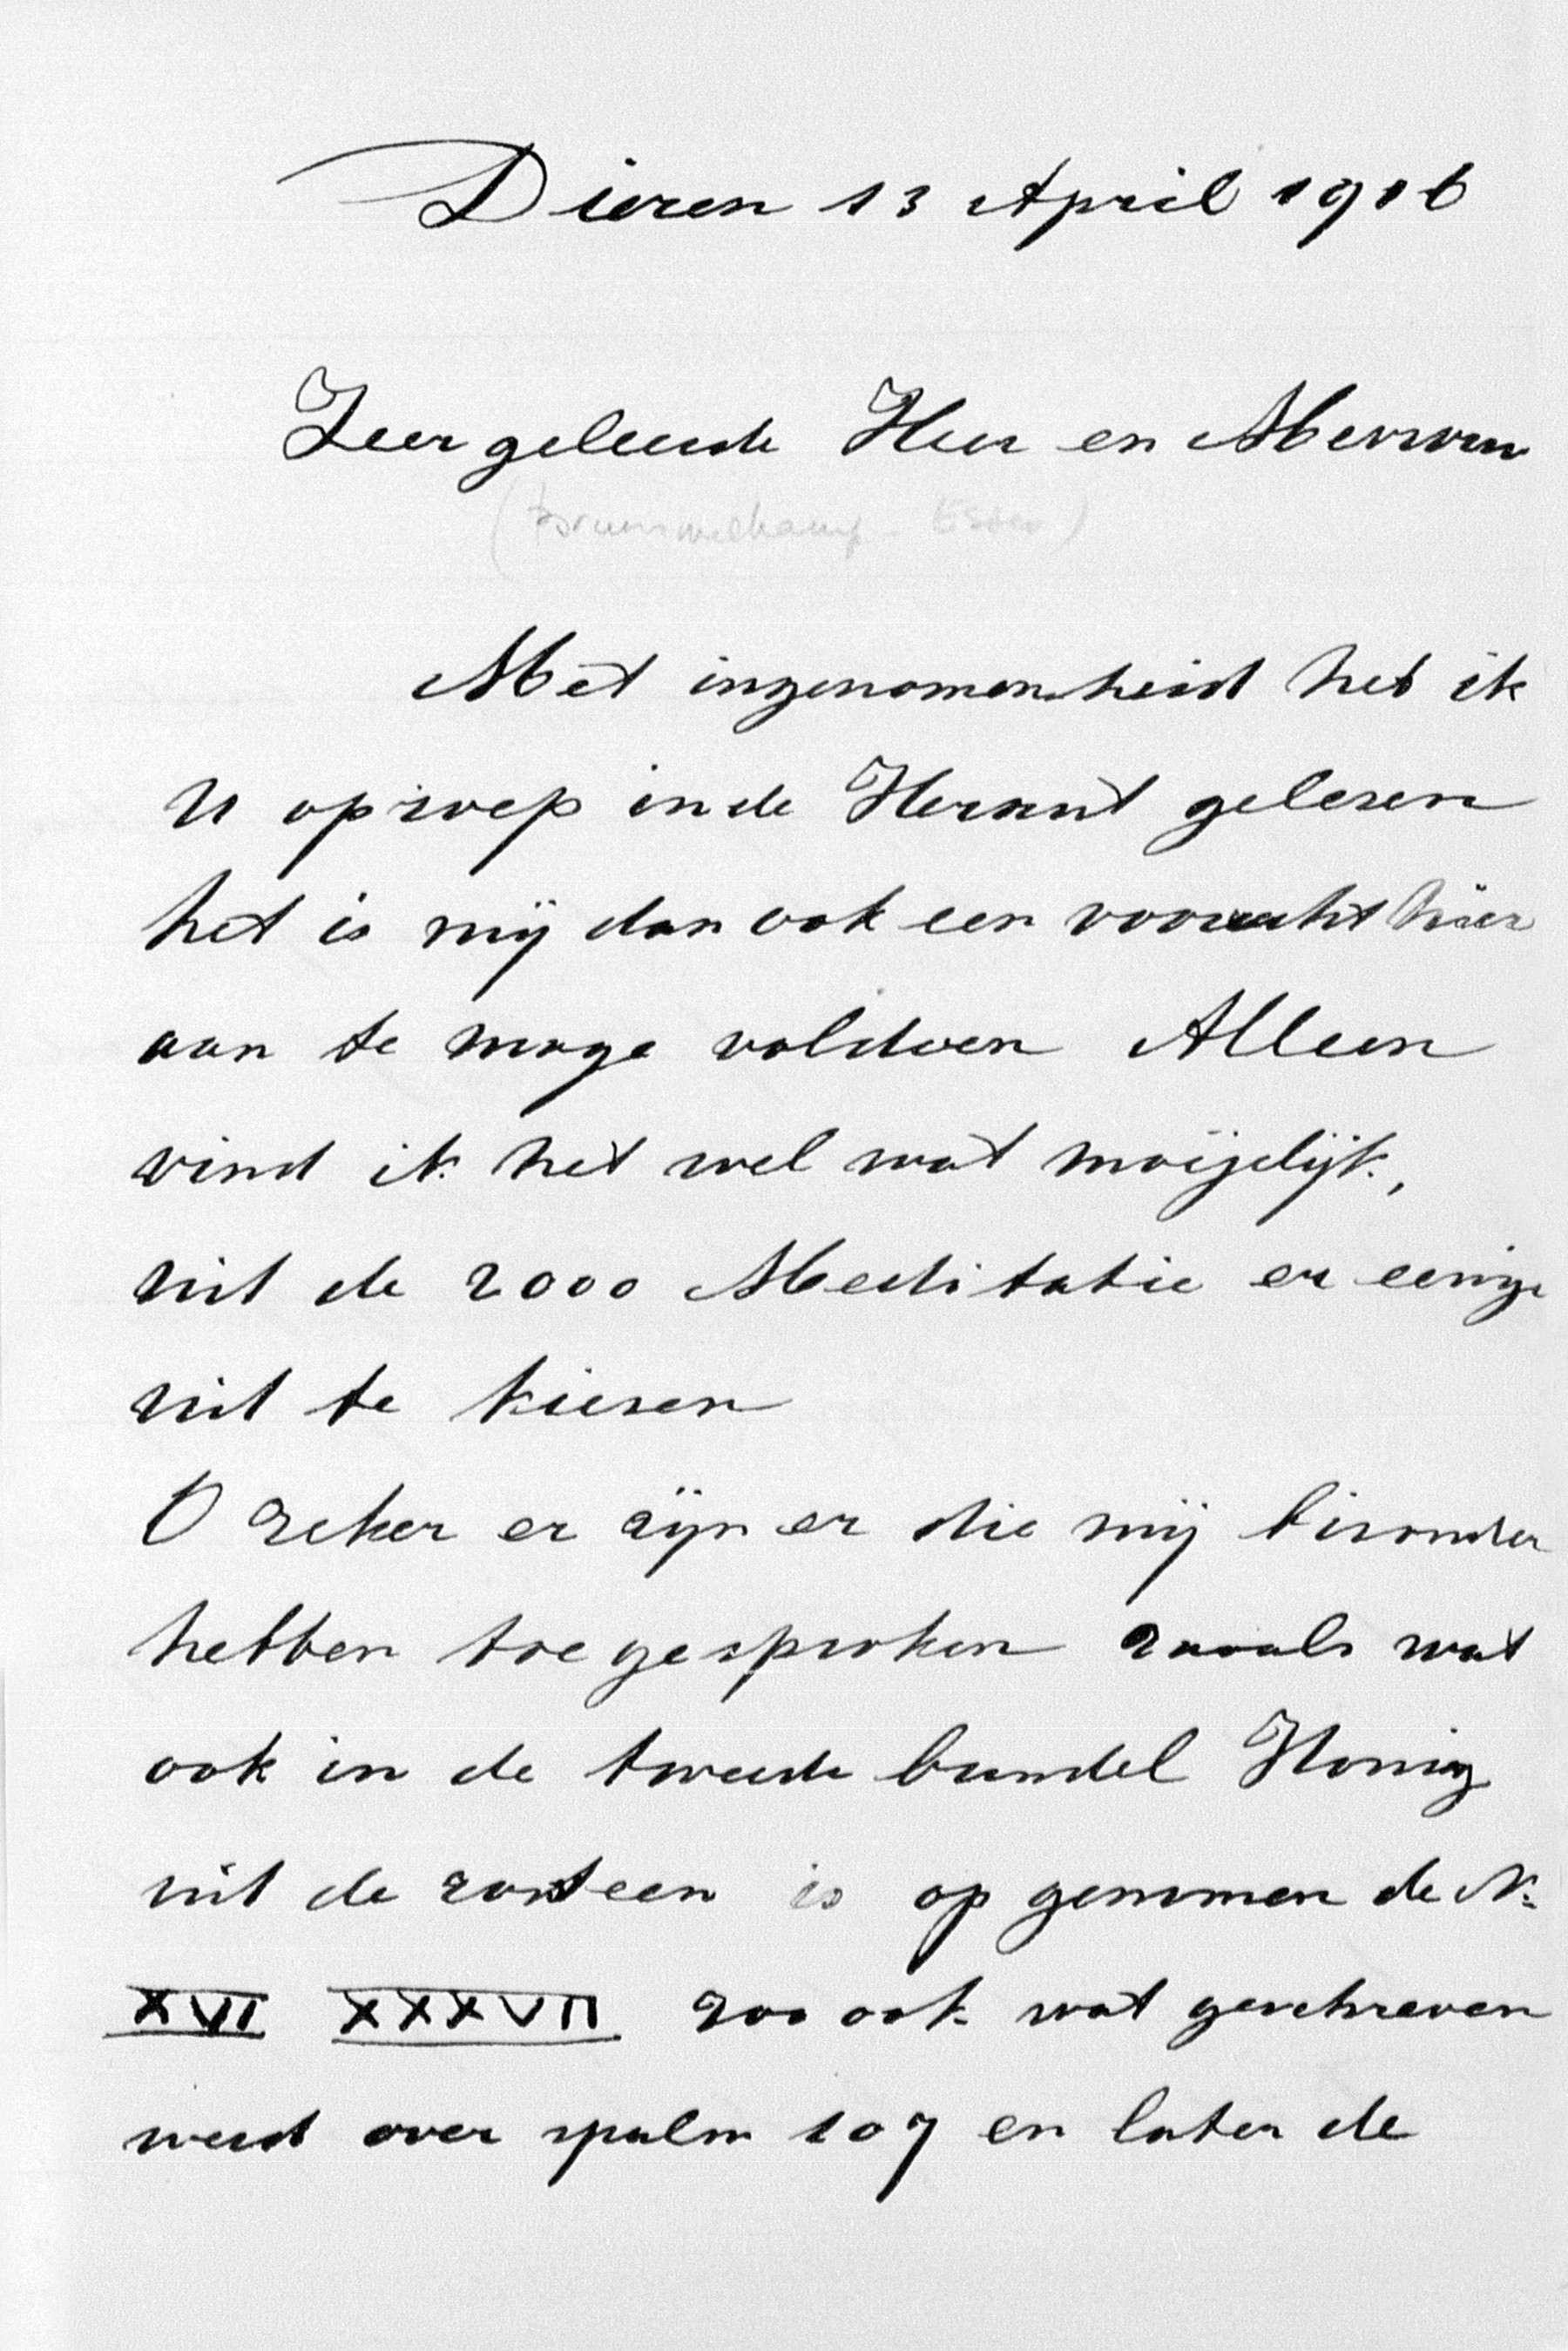 Dieren 13 April 1916
Zeer geleerde Heer en Mevrouw
Met ingenomenheid heb ik
U oproep in de Heraut gelesen
het is mij dan ook een voorrecht hier
aan te moge voldoen Alleen
vind ik het wel wat moijelijk,
uit de 2000 Meditatie er eenige
uit te kiesen
O zeker er zijn er die mij bisonder
hebben toegesproken zooals wat
ook in de tweede bundel Honig
uit de rotsteen is op genomen de N:
XVI XXXVII zoo ook wat geschreven
werd over spalm 107 en later de